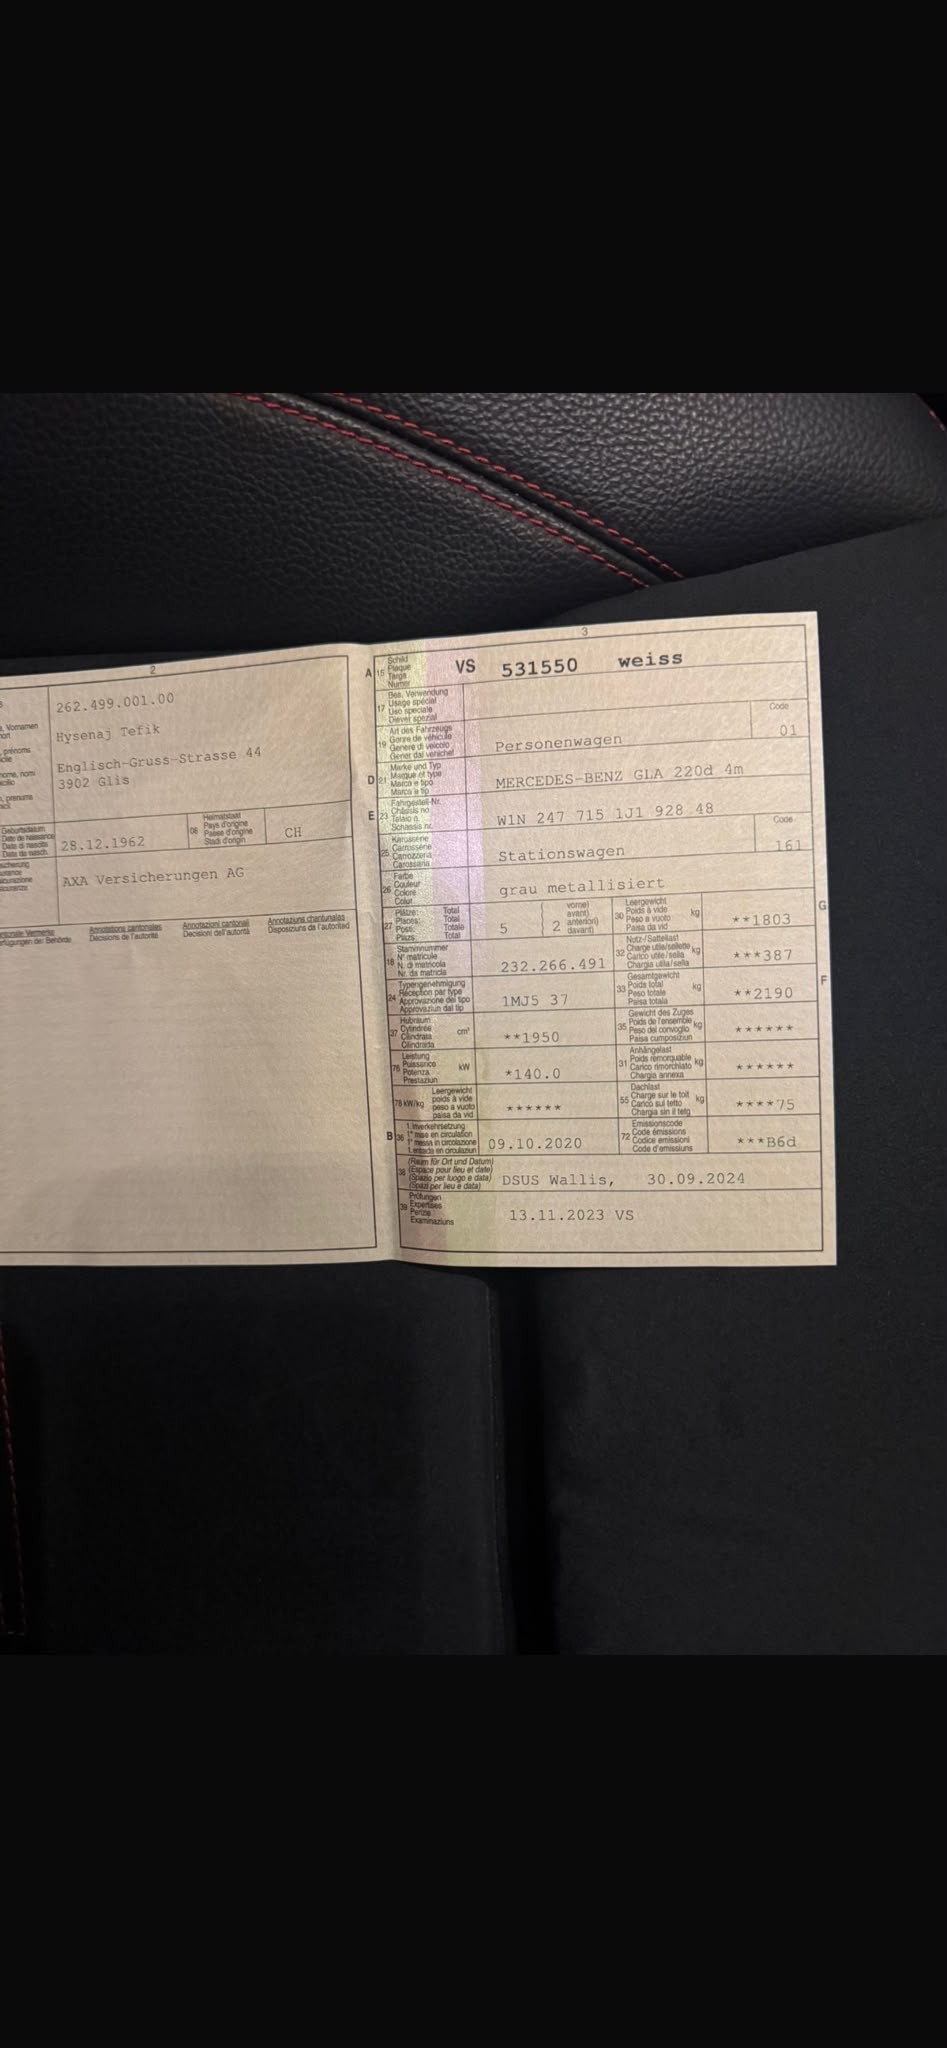 2
262.499.001.00
Vornamen
Hysenaj Tefik
prénoms
Englisch-Gruss-Strasse 44
3902 Glis
nome, nom
prenums
Geburtsdatum
Date de naissance
Data di nascita
Data da nasch.
28.12.1962
08
Heimatstaat
Pays d'origine
Paese d'origine
Stadi d'origin
CH
AXA Versicherungen AG
Kantonale Vermerke
Verfügungen der Behörde
Annotations cantonales
Décisions de l'autorité
Annotazioni cantonali
Decisioni dell'autorità
Annotaziuns chantunalas
Disposiziuns da l'autoritad
3
A 15
Schild
Plaque
Targa
Numer
VS 531550 weiss
17
Bes. Verwendung
Usage spécial
Uso speciale
Diever spezial
19
Art des Fahrzeugs
Genre de véhicule
Genere di veicolo
Gener dal vehichel
Personenwagen
Code
01
D 21
Marke und Typ
Marque et type
Marca e tipo
Marca e tip
MERCEDES-BENZ GLA 220d 4m
E 23
Fahrgestell-Nr.
Châssis no
Telaio n.
Schassis nr.
W1N 247 715 1J1 928 48
25
Karosserie
Carrosserie
Carrozzeria
Carossaria
Stationswagen
Code
161
26
Farbe
Couleur
Colore
Colur
grau metallisiert
27
Plätze: Total
Places: Total
Posti: Totale
Plazs: Total
5
2
vorne)
avant)
anteriori)
davant)
G
30
Leergewicht
Poids à vide
Peso a vuoto
Paisa da vid
kg
**1803
18
Stammnummer
N° matricule
N. di matricola
Nr. da matricla
232.266.491
32
Nutz-/Sattellast
Charge utile/sellette
Carico utile/sella
Chargia utila/sella
kg
***387
24
Typengenehmigung
Réception par type
Approvazione del tipo
Approvaziun dal tip
1MJ5 37
33
Gesamtgewicht
Poids total
Peso totale
Paisa totala
kg
**2190
F
37
Hubraum
Cylindrée
Cilindrata
Cilindrada
cm³
**1950
35
Gewicht des Zuges
Poids de l'ensemble
Peso del convoglio
Paisa cumposiziun
kg
******
76
Leistung
Puissance
Potenza
Prestaziun
kW
*140.0
31
Anhängelast
Poids remorquable
Carico rimorchiato
Chargia annexa
kg
******
78 kW/kg
Leergewicht
poids à vide
peso a vuoto
paisa da vid
******
55
Dachlast
Charge sur le toit
Carico sul tetto
Chargia sin il tetg
kg
****75
B 36
1. Inverkehrsetzung
1re mise en circulation
1a messa in circolazione
1. entrada en circulaziun
09.10.2020
72
Emissionscode
Code émissions
Codice emissioni
Code d'emissiuns
***B6d
38
(Raum für Ort und Datum)
(Espace pour lieu et date)
(Spazio per luogo e data)
(Spazi per lieu e data)
DSUS Wallis, 30.09.2024
39
Prüfungen
Expertises
Perizie
Examinaziuns
13.11.2023 VS